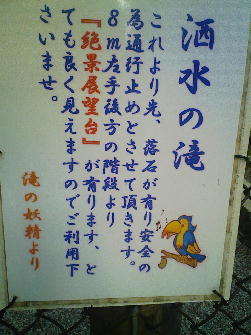 洒水の滝
これより先、落石が有り安全の
為通行止めとさせて頂きます。
8m左手後方の階段より
『絶景展望台』が有ります、と
ても良く見えますのでご利用下
さいませ。
滝の妖精より